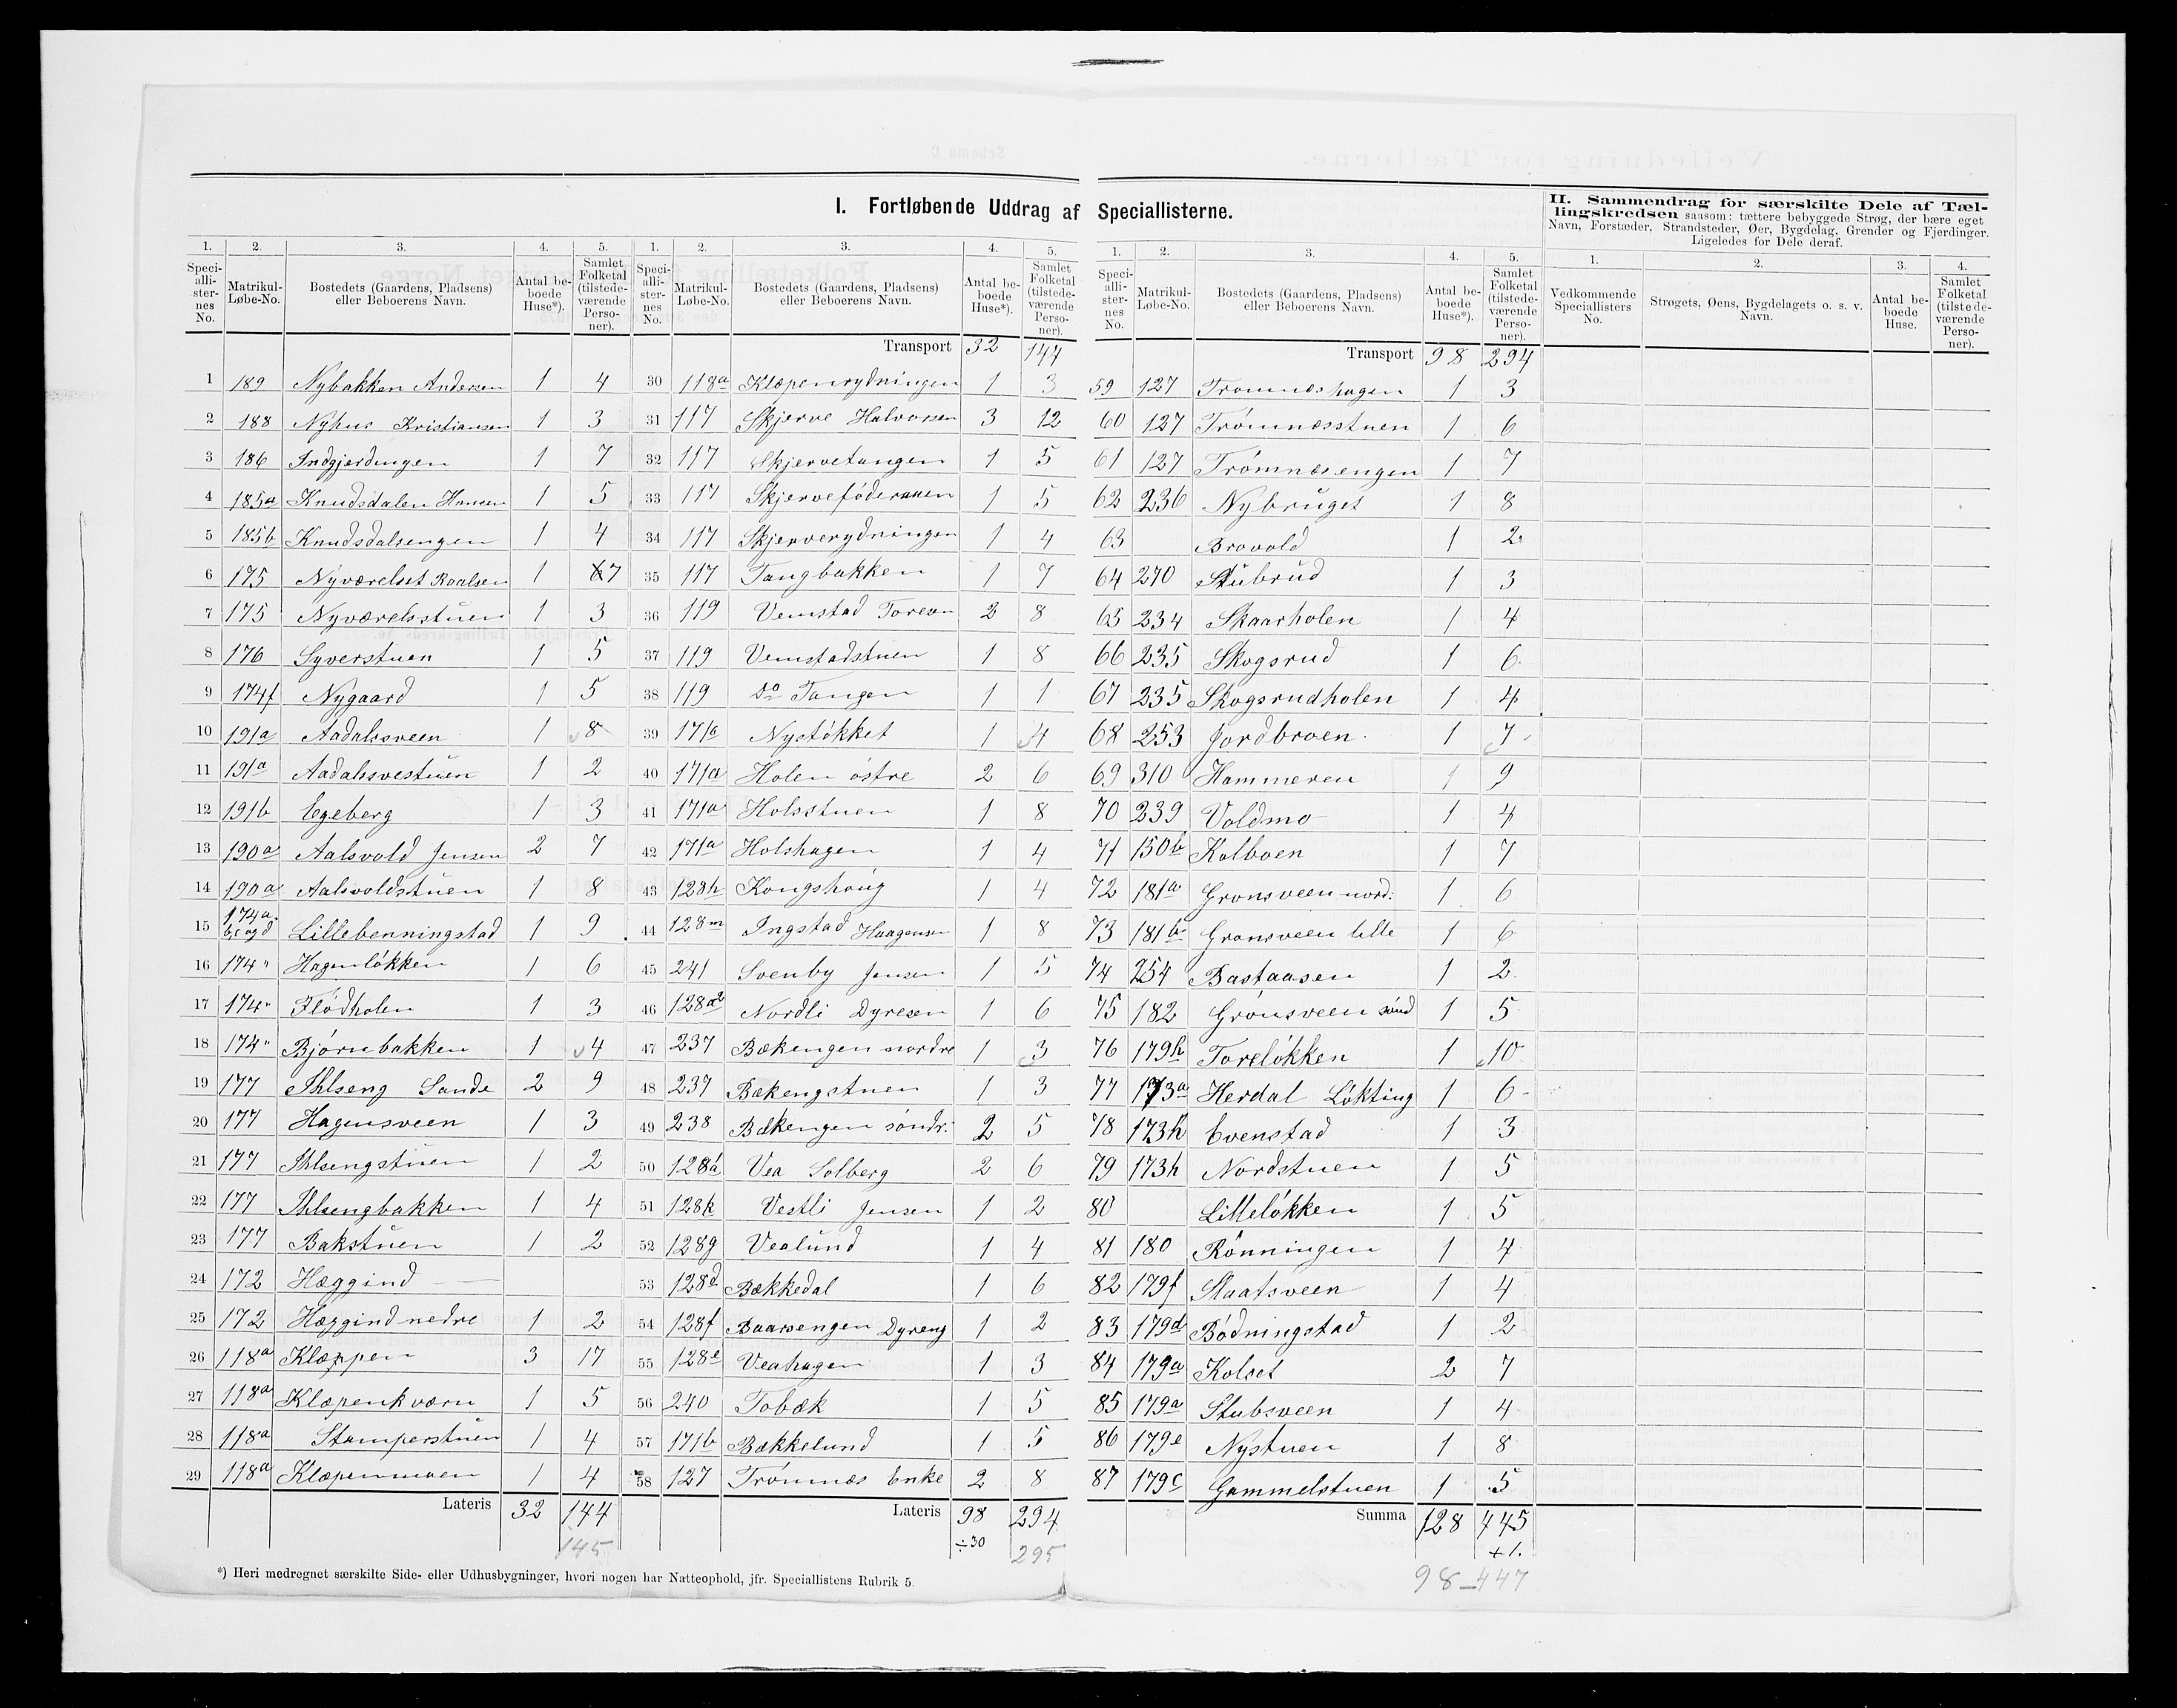 I. Fortløbende Uddrag af Speciallisterne.
II. Sammendrag for særskilte Dele af Tællingskredsen saasom: tættere bebyggede Strøg, der bære eget Navn, Forstæder, Strandsteder, Øer, Bygdelag, Grender og Fjerdinger. Ligeledes for Dele deraf.
1. 2. 3. 4. 5. 1. 2. 3. 4. 5. 1. 2. 3. 4. 5. 1. 2. 3. 4.
Speciallisternes No. Matrikul-Løbe-No. Bostedets (Gaardens, Pladsens) eller Beboerens Navn. Antal beboede Huse*). Samlet Folketal (tilstedeværende Personer).
Speciallisternes No. Matrikul-Løbe-No. Bostedets (Gaardens, Pladsens) eller Beboerens Navn. Antal beboede Huse*). Samlet Folketal (tilstedeværende Personer).
Speciallisternes No. Matrikul-Løbe-No. Bostedets (Gaardens, Pladsens) eller Beboerens Navn. Antal beboede Huse*). Samlet Folketal (tilstedeværende Personer).
Vedkommende Speciallisters No. Strøgets, Øens, Bygdelagets o. s. v. Navn. Antal beboede Huse. Samlet Folketal (tilstedeværende Personer).
1 189 Nybakken Andersen 1 4
2 188 Nyhus Kristiansen 1 3
3 186 Indgjerdingen 1 7
4 185a Knudsdalen Hansen 1 5
5 185b Knudsdalsengen 1 4
6 175 Nyværelset Roalsen 1 7
7 175 Nyværelsstuen 1 3
8 176 Syverstuen 1 5
9 174f Nygaard 1 5
10 191a Aadalssveen 1 8
11 191a Aadalssvestuen 1 2
12 191b Egeberg 1 3
13 190a Aalsvold Jensen 2 7
14 190a Aalsvoldstuen 1 8
15 174a b, c og d Lillebenningstad 1 9
16 174 " Hagenløkken 1 6
17 174 " Flødholen 1 3
18 174 " Bjørnebakken 1 4
19 177 Ihlseng Sande 2 9
20 177 Hagensveen 1 3
21 177 Ihlsengstuen 1 2
22 177 Ihlsengbakken 1 4
23 177 Bakstuen 1 2
24 172 Hæggind —
25 172 Hæggind nedre 1 2
26 118a Klæppen 3 17
27 118a Klæpenkværn 1 5
28 118a Stamperstuen 1 4
29 118a Klæpenmoen 1 4
Lateris 32 144
145
Transport 32 144
30 118a Klæpenrydningen 1 3
31 117 Skjerve Halvorsen 3 12
32 117 Skjervetangen 1 5
33 117 1 5
34 117 Skjerverydningen 1 4
35 117 Tangbakken 1 7
36 119 Vemstad Toresen 2 8
37 119 Vemstadstuen 1 8
38 119 do Tangen 1 1
39 171c Nystøkket 1 4
40 171a Holen østre 2 6
41 171a Holsstuen 1 8
42 171a Holshagen 1 4
43 128h Kongshoug 1 4
44 128m Ingstad Haagensen 1 8
45 241 Svenby Jensen 1 5
46 128a2 Nordli Dyresen 1 6
47 237 Bækengen nordre 1 3
48 237 Bækengstuen 1 3
49 238 Bækengen søndr. 2 5
50 128a Vea Solberg 2 6
51 128k Vestli Jensen 1 2
52 128g Vealund 1 4
53 128d Bækkedal 1 6
54 128f Baarsengen Dyreng 1 2
55 128e Veahagen 1 3
56 240 Tobæk 1 5
57 171b Bækkelund 1 5
58 127 Trømnæs Enke 2 8
Lateris 98 294
÷30 295
Transport 98 294
59 127 Trømnæshagen 1 3
60 127 Trømnæsstuen 1 6
61 127 Trømnæsengen 1 7
62 236 Nybruget 1 8
63 Brovold 1 2
64 270 Stubrud 1 3
65 234 Skaarholen 1 4
66 235 Skogsrud 1 6
67 235 Skogsrudholen 1 4
68 253 Jordbroen 1 7
69 310 Hammeren 1 9
70 239 Voldmo 1 4
71 150b Kolboen 1 7
72 181a Grønsveen nord: 1 6
73 181b Grønsveen lille 1 6
74 254 Bastaasen 1 2
75 182 Grønsveen sønd 1 5
76 179h Toreløkken 1 10
77 173a Herdal Løkting 1 6
78 173h Evenstad 1 3
79 173h Nordstuen 1 5
80 Lilleløkken 1 5
81 180 Rønningen 1 4
82 179f Slaatsveen 1 4
83 179d Bødningstad 1 2
84 179a Kolset 2 7
85 179a Stubsveen 1 4
86 179e Nystuen 1 8
87 179c Gammelstuen 1 5
Summa 128 445
+1.
98 — 447
*) Heri medregnet særskilte Side- eller Udhusbygninger, hvori nogen har Natteophold, jfr. Speciallistens Rubrik 5.